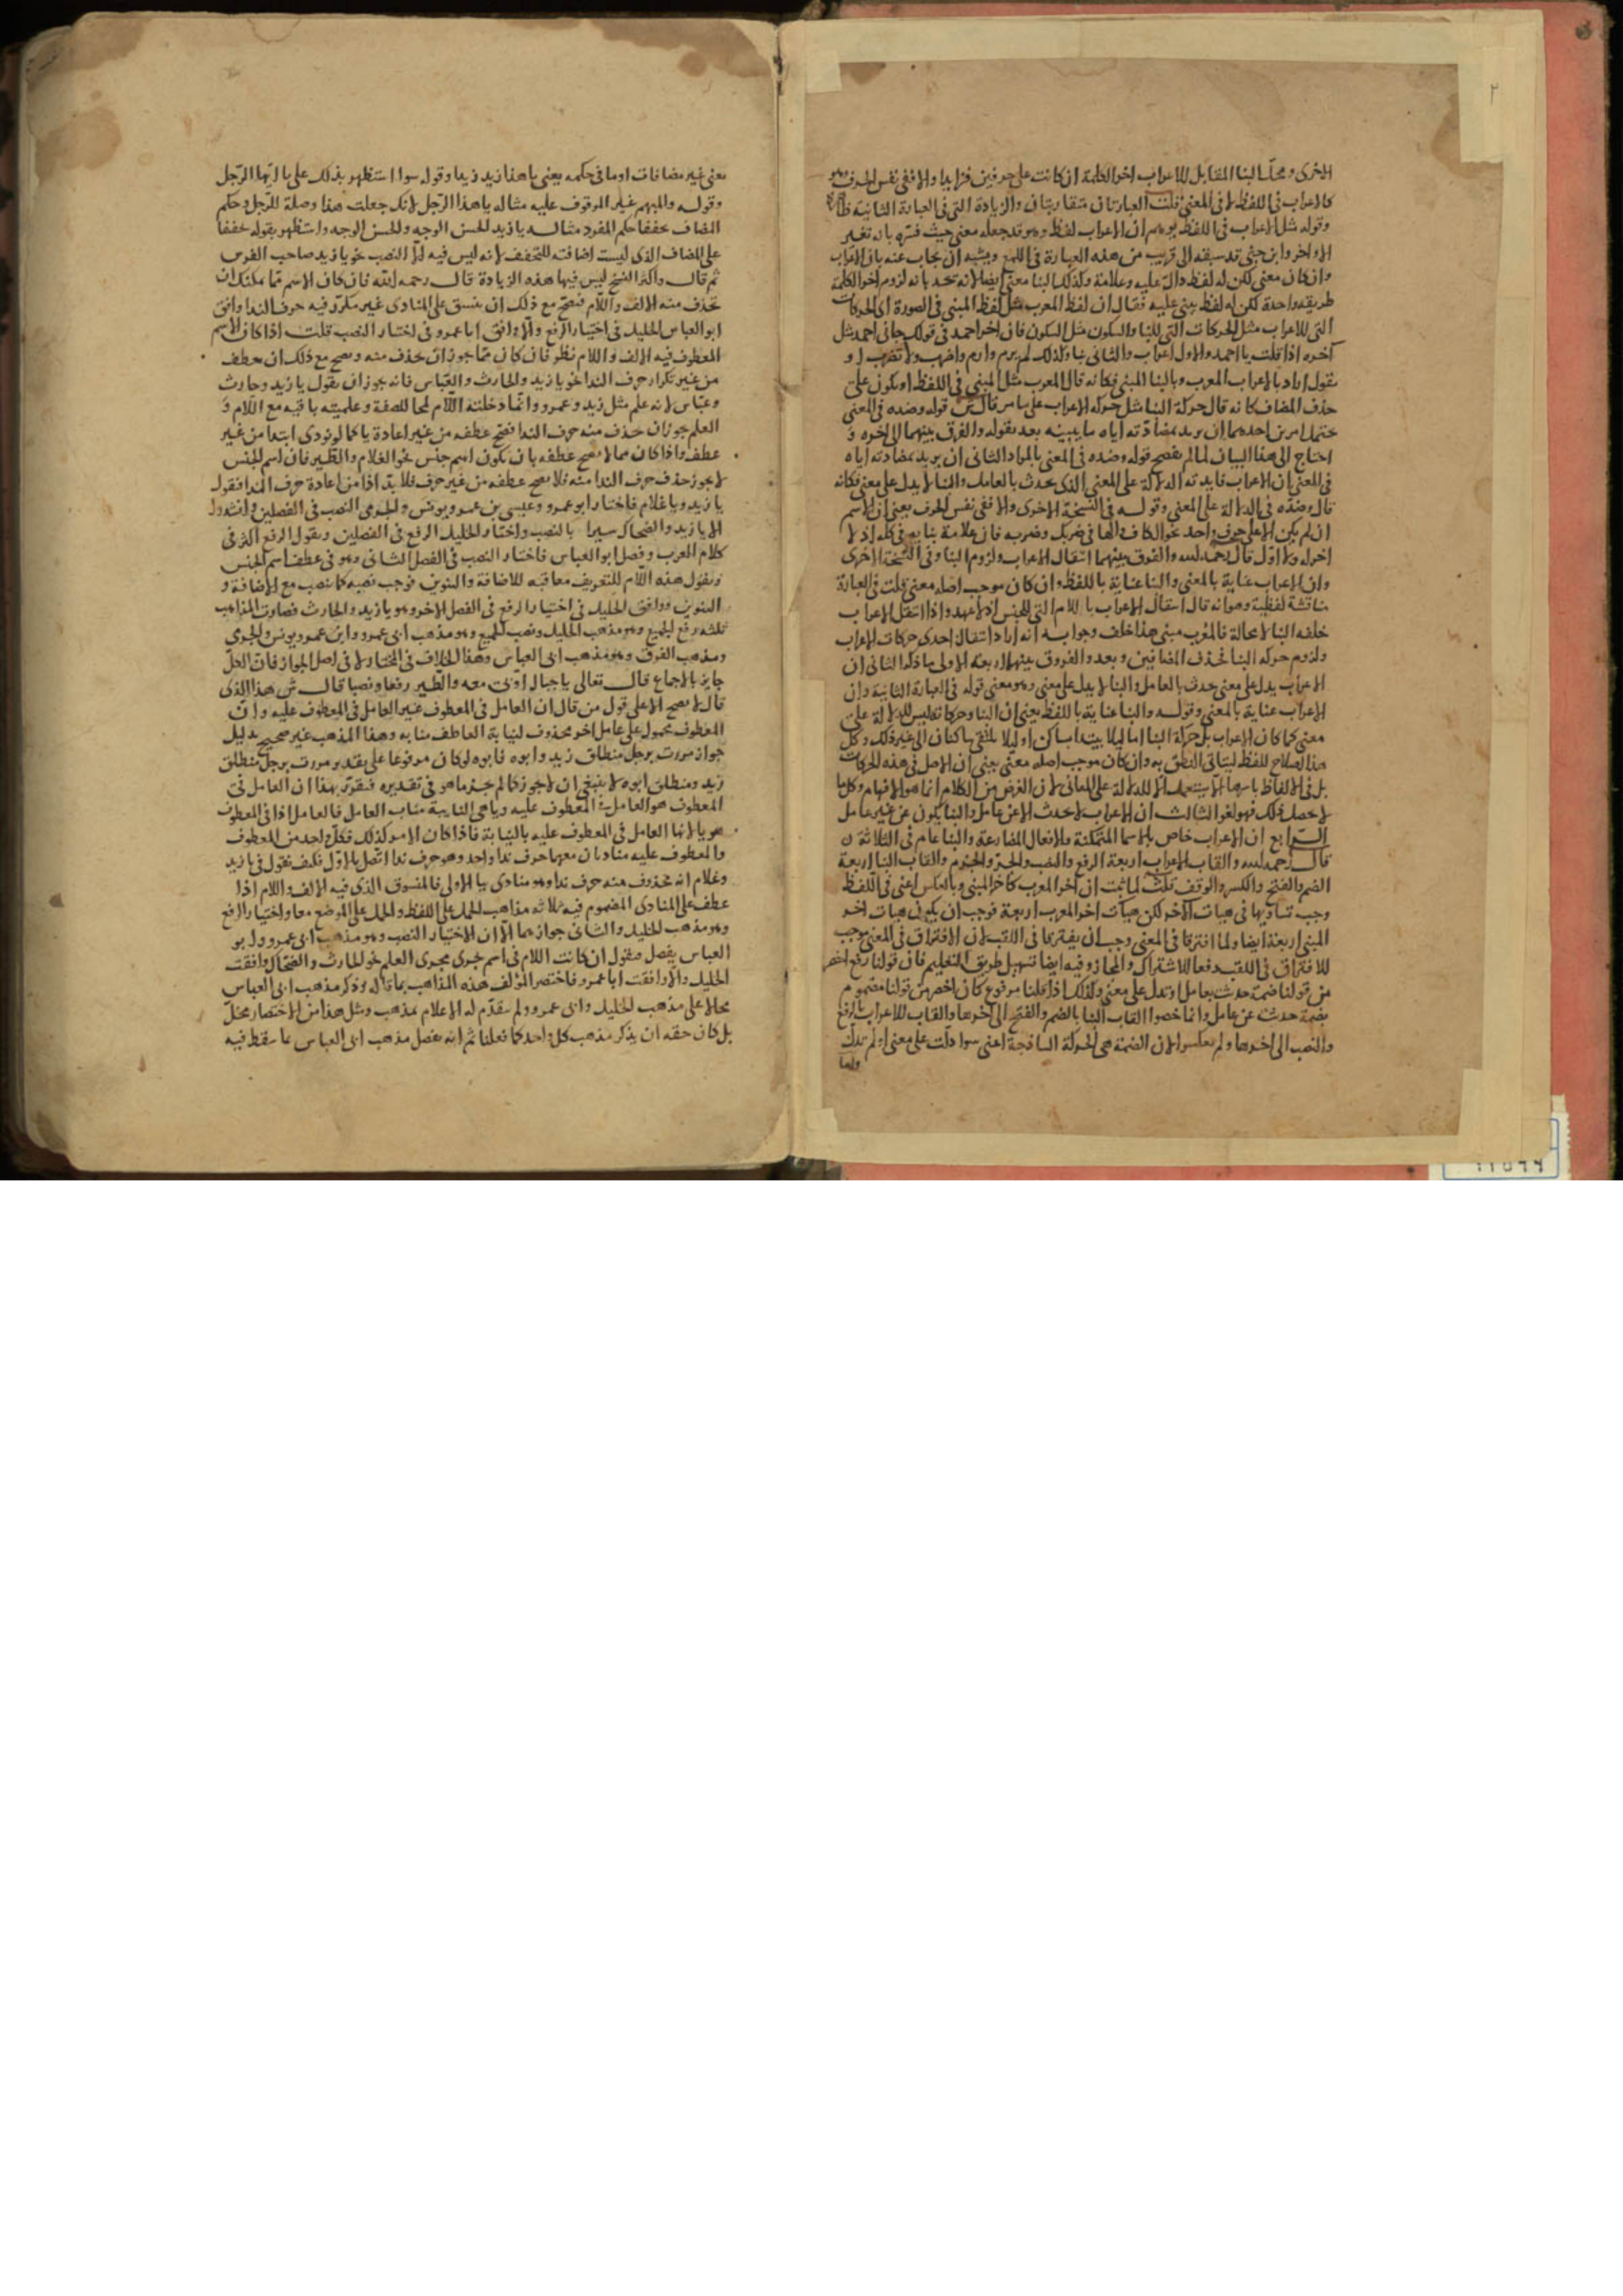 ٢
الاخرى ومحل البنا المقابل للاعراب اخر الكلمة ان كانت على حرفين فزايدا والا ففى نفس الحرف وهو
كالاعراب فى اللفظ لا فى المعنى قلت العبارتان متقاربتان والزيادة التى فى العبارة الثانية
وقوله مثل الاعراب فى اللفظ يوهم ان الاعراب لفظ وهو قد جعله معنى حيث فسره بانه تغير
الاواخر وابن جنى قد سبقه الى قريب من هذه العبارة فى اللمع ويشبه ان يجاب عنه بان الاعراب
وان كان معنى لكن له لفظ دال عليه وعلامة وكذلك البنا معنى ايضا لانه تحد بانه لزوم اخر الكلمة
طريقة واحدة لكن له لفظ يبنى عليه فقال ان لفظ المعرب مثل لفظ المبنى فى الصورة اى الحركات
التى للاعراب مثل الحركات التى للبنا والسكون مثل السكون فان اخر احمد فى قولك جانى احمد مثل
اخره اذا قلت يا احمد والاول اعراب والثانى بنا وكذلك لم يرم وارم واضرب ولا تضرب او
نقول اراد بالاعراب المعرب وبالبنا المبنى فكانه قال المعرب مثل المبنى فى اللفظ او يكون على
حذف المضاف كانه قال حركة البنا مثل حركة الاعراب على ما مر قال ش قوله وضده فى المعنى
يحتمل امرين احدهما ان يريد بمضادته اياه ما يبينه بعد بقوله والفرق بينهما الى اخره و
احتاج الى هذا البيان لما لم يفصح قوله وضده فى المعنى بالمراد الثانى ان يريد بمضادته اياه
فى المعنى ان الاعراب فايدته الدلالة على المعنى الذى يحدث بالعامل والبنا لا يدل على معنى فكانه
قال وضده فى الدلالة على المعنى وقوله فى النسخة الاخرى والا ففى نفس الحرف يعنى ان الاسم
ان لم يكن الا على حرف واحد نحو الكاف والها فى ضربك وضربه فان علامة بنايه فى كله اذ لا
اخر له ولا اول قال رحمه الله والفرق بينهما انتقال الاعراب ولزوم البنا وفى النسخة الاخرى
وان الاعراب عناية بالمعنى والبنا عناية باللفظ وان كان موجب اصله معنى قلت فى العبارة
مناقشة لفظية وهو انه قال انتقال الاعراب باللام التى للجنس اذ لا عهد واذا انتقل الاعراب
خلفه البنا لا محالة فالمعرب مبنى هذا خلف وجوابه انه اراد انتقال احدى حركات الاعراب
ولزوم حركة البنا فحذف المضافين وبعد والفروق بينهما اربعة الاولى ما ذكر الثانى ان
الاعراب يدل على معنى يحدث بالعامل والبنا لا يدل على معنى وهو معنى قوله فى العبارة الثانية وان
الاعراب عناية بالمعنى وقوله والبنا عناية باللفظ يعنى ان البنا وحركاته ليس للدلالة على
معنى كما كان الاعراب بل حركة البنا اما ليلا يبتدا بساكن او ليلا يلتقى ساكنان الى غير ذلك وكل
هذا اصلاح للفظ ليتاتى النطق به وان كان موجب اصله معنى يعنى ان الاصل فى هذه الحركات
بل فى الالفاظ باسرها الا يستعمل الا للدلالة على المعانى لان الغرض من الكلام انما هو الافهام وكل ما
لا يحصل ذلك فهو لغو الثالث ان الاعراب لا يحدث الا عن عامل والبنا يكون عن غير عامل
الرابع ان الاعراب خاص بالاسما المتمكنة والافعال المضارعة والبنا عام فى الثلاثة
قال رحمه الله والقاب الاعراب اربعة الرفع والنصب والجر والجزم والقاب البنا اربعة
الضم والفتح والكسر والوقف قلت لما ثبت ان اخر المعرب كاخر المبنى وبالعكس اعنى فى اللفظ
وجب تساويهما فى هيات الاخر لكن هيات اخر المعرب اربعة فوجب ان يكون هيات اخر
المبنى اربعة ايضا ولما افترقا فى المعنى وجب ان يفترقا فى اللقب لان الافتراق فى المعنى موجب
للافتراق فى اللقب دفعا للاشتراك والمجاز وفيه ايضا تسهيل طريق التعليم فان قولنا رفع اخصر
من قولنا ضمة حدثت بعامل او تدل على معنى وكذلك اذا قلنا مرفوع كان اخصر من قولنا مضموم
بضمة حدثت عن عامل وانما خصوا القاب البنا بالضم والفتح الى اخرها والقاب الاعراب بالرفع
والنصب الى اخرها ولم يعكسوا لان الضمة هى الحركة الساذجة اعنى سوا دلت على معنى او لم تدل
واما
معنى غير مضافات او ما فى حكمه يعنى يا هذا زيد زيدا وقوله سوا استظهر بذلك على يا ايها الرجل
وقوله والمبهم غير الموقوف عليه مثاله يا هذا الرجل لانك جعلت هذا وصلة للرجل وحكم
المضاف مخففا حكم المفرد مثاله يا زيد الحسن الوجه والحسن الوجه واستظهر بقوله مخففا
على المضاف الذى ليست اضافته للتخفيف لانه ليس فيه الا النصب نحو يا زيد صاحب الفرس
ثم قال واكثر النسخ ليس فيها هذه الزيادة قال رحمه الله فان كان الاسم مما يمكنك ان
تحذف منه الالف واللام فيصح مع ذلك ان ينسق على المنادى غير مكرر فيه حرف الندا وافق
ابو العباس الخليل فى اختيار الرفع والا وافق ابا عمرو فى اختيار النصب قلت اذا كان الاسم
المعطوف فيه الالف واللام نظر فان كان مما يجوز ان يحذف منه ويصح مع ذلك ان يعطف
من غير تكرار حرف الندا نحو يا زيد والحارث والعباس فانه يجوز ان نقول يا زيد وحارث
وعباس لانه علم مثل زيد وعمرو وانما دخلته اللام لمحا للصفة وعلميته باقية مع اللام و
العلم يجوز ان يحذف منه حرف الندا فيصح عطفه من غير اعادة يا كما لو نودى ابتدا من غير
عطف واذا كان مما لا يصح عطفه بان يكون اسم جنس نحو الغلام والطير فان اسم الجنس
لا يجوز حذف حرف الندا منه فلا يصح عطفه من غير حرف فلا بد اذا من اعادة حرف الندا فنقول
يا زيد ويا غلام فاختار ابو عمرو وعيسى بن عمر ويونس والجرمى النصب فى الفصلين وانشدوا
الا يا زيد والضحاك سيرا بالنصب واختار الخليل الرفع فى الفصلين ويقول الرفع اكثر فى
كلام العرب وفصل ابو العباس فاختار النصب فى الفصل الثانى وهو فى عطف اسم الجنس
ويقول هذه اللام للتعريف معاقبه للاضافة والتنوين فوجب نصبه كما نصب مع الاضافة و
التنوين ووافق الخليل فى اختيار الرفع فى الفصل الاخر وهو يا زيد والحارث فصارت المذاهب
ثلثه رفع الجميع وهو مذهب الخليل ونصب الجميع وهو مذهب ابى عمرو وابن عمر ويونس والجرمى
ومذهب الفرق وهو مذهب ابى العباس وهذا الخلاف فى المختار لا فى اصل الجواز فان الكل
جايز بالاجماع قال تعالى يا جبال اوبى معه والطير رفعا ونصبا قال ش هذا الذى
قال لا يصح الا على قول من قال ان العامل فى المعطوف غير العامل فى المعطوف عليه وان
المعطوف محمول على عامل اخر محذوف لنيابة العاطف منابه وهذا المذهب غير صحيح بدليل
جواز مررت برجل منطلق زيد وابوه فابوه لو كان مرفوعا على تقدير مررت برجل منطلق
زيد ومنطلق ابوه لا ينبغى ان لا يجوز كما لم يجز ما هو فى تقديره فتقرر بهذا ان العامل فى
المعطوف هو العامل فى المعطوف عليه ويا هى النايبة مناب العامل فالعامل اذا فى المعطوف
هو يا لانها العامل فى المعطوف عليه بالنيابة فاذا كان الامر كذلك فكل واحد من المعطوف
والمعطوف عليه مناديان معهما حرف ندا واحد وهو حرف ندا اتصل بالاول فكيف نقول فى يا زيد
وغلام انه محذوف منه حرف ندا وهو منادى بيا الاولى فالمنسوق الذى فيه الالف واللام اذا
عطف على المنادى المضموم فيه ثلاثه مذاهب الحمل على اللفظ والحمل على الموضع معا واختيار الرفع
وهو مذهب الخليل والثانى جوازهما الا ان الاختيار النصب وهو مذهب ابى عمرو وابو
العباس يفصل فيقول ان كانت اللام فى اسم جرى مجرى العلم نحو الحارث والضحاك وافقت
الخليل والا وافقت ابا عمرو فاختصر المؤلف هذه المذاهب بما قاله وذكر مذهب ابى العباس
محالا على مذهب الخليل وابى عمرو ولم يتقدم له الاعلام بمذهب ومثل هذا من الاختصار مخل
بل كان حقه ان يذكر مذهب كل واحد كما فعلنا ثم انه يفصل مذهب ابى العباس بما يقط فيه